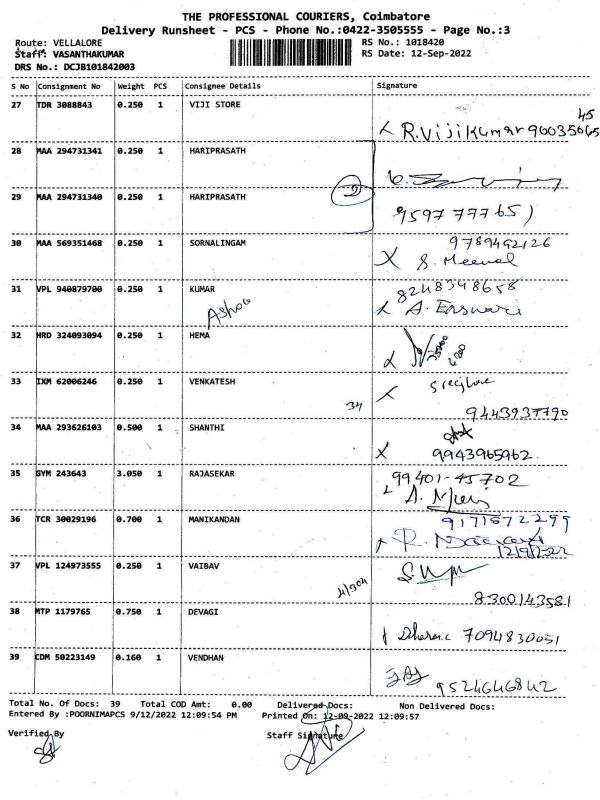 THE PROFESSIONAL COURIERS, Coimbatore
Delivery Runsheet - PCS - Phone No.:0422-3505555 - Page No.:3
Route: VELLALORE RS No.: 1018420
Staff: VASANTHAKUMAR RS Date: 12-Sep-2022
DRS No.: DCJB101842003
S No Consignment No Weight PCS Consignee Details Signature
27 TDR 3088843 0.250 1 VIJI STORE
45
R.Vijikumar 90035065
28 MAA 294731341 0.250 1 HARIPRASATH
29 MAA 294731340 0.250 1 HARIPRASATH
2
9597 77765
30 MAA 569351468 0.250 1 SORNALINGAM
9789492126
S. Meenal
31 VPL 940879700 0.250 1 KUMAR
8248348658
Ashok
A. Easwari
32 HRD 324093094 0.250 1 HEMA
33 IXM 62006246 0.250 1 VENKATESH
34
9443937790
34 MAA 293626103 0.500 1 SHANTHI
9943965962
35 GYM 243643 3.050 1 RAJASEKAR
99401-45702
36 TCR 30029196 0.700 1 MANIKANDAN
9171572299
12/9/2022
37 VPL 124973555 0.250 1 VAIBAV
4/304
8300143581
38 MTP 1179765 0.750 1 DEVAGI
7094830051
39 CDM 50223149 0.160 1 VENDHAN
9524646842
Total No. Of Docs: 39 Total COD Amt: 0.00 Delivered Docs: Non Delivered Docs:
Entered By :POORNIMAPCS 9/12/2022 12:09:54 PM Printed On: 12-09-2022 12:09:57
Verified By Staff Signature